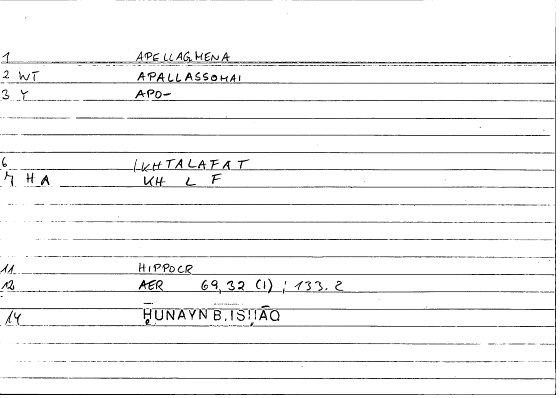 1 APELLAGMENA
2 WT APALLASSOMAI
3 Y APO-
6 IKHTALAFAT
7 HA KH L F
11 HIPPOCR
12 AER 69,32 (1) ; 133.2
14 ḤUNAYN B.ISḤĀQ